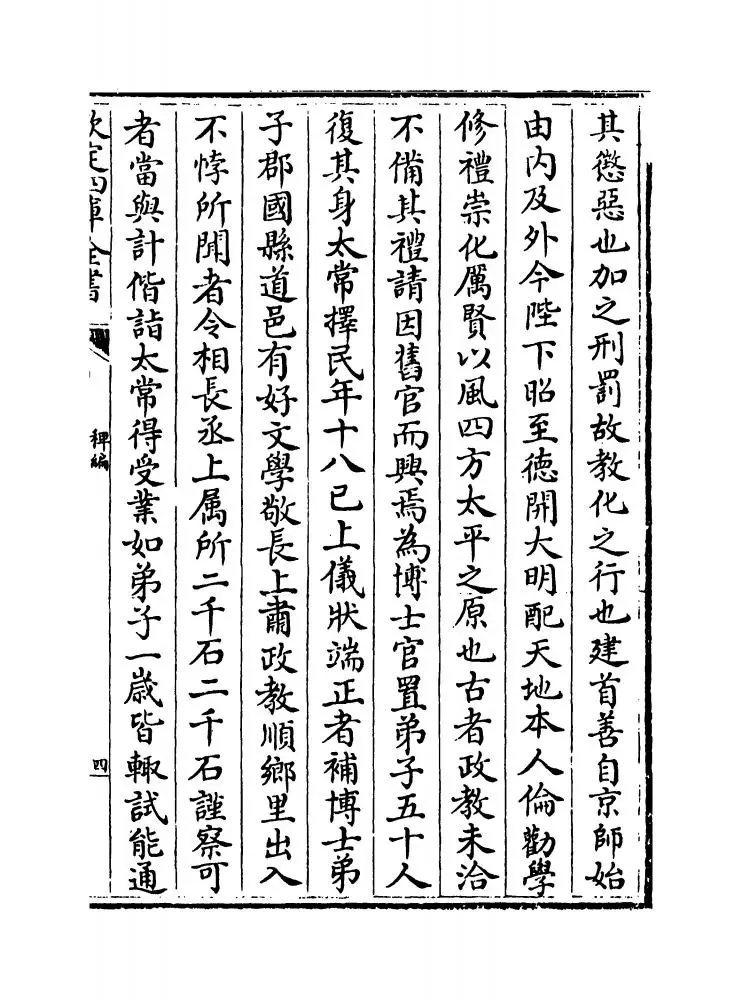 其懲惡也加之刑罰故教化之行也建首善自京師始
由内及外今陛下昭至德開大明配天地本人倫勸學
修禮崇化厲賢以風四方太平之原也古者政教未洽
不備其禮請因舊官而興焉為博士官置弟子五十人
復其身太常擇民年十八已上儀狀端正者補博士弟
子郡國縣道邑有好文學敬長上肅政教順鄉里出入
不悖所聞者令相長丞上属所二千石二千石謹察可
者當與計偕詣太常得受業如弟子一嵗皆輙試能通
欽定四庫全書
稗編
四